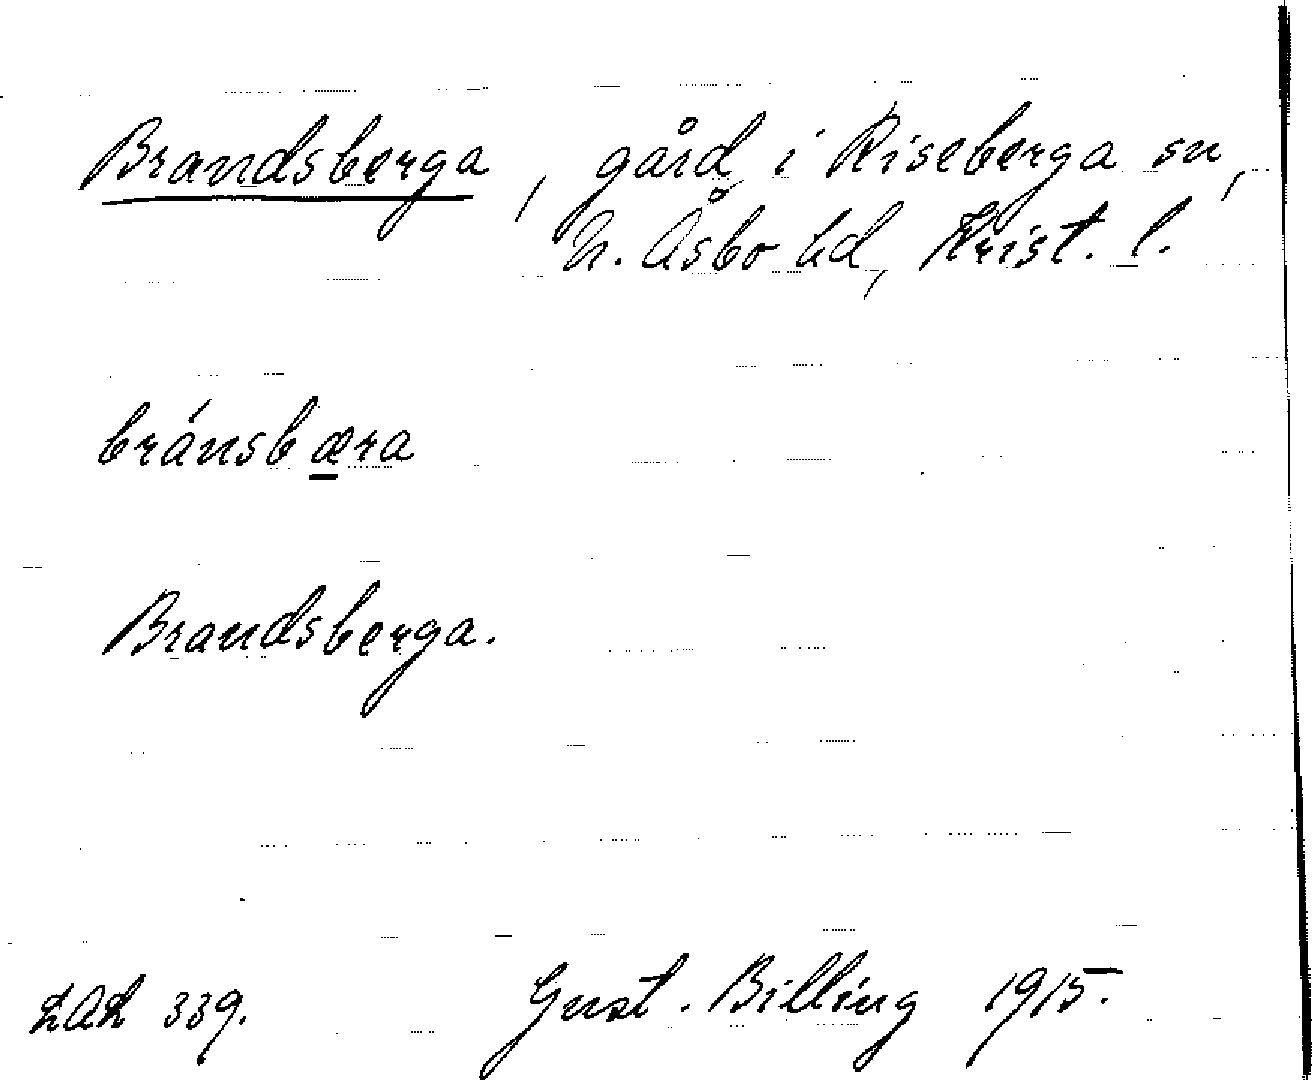 Brandsberga, gård i Riseberga sn,
N. Åsbo hd, Krist. l.
bránsbæra
Brandsberga.
LAL 339. Gust. Billing 1915.